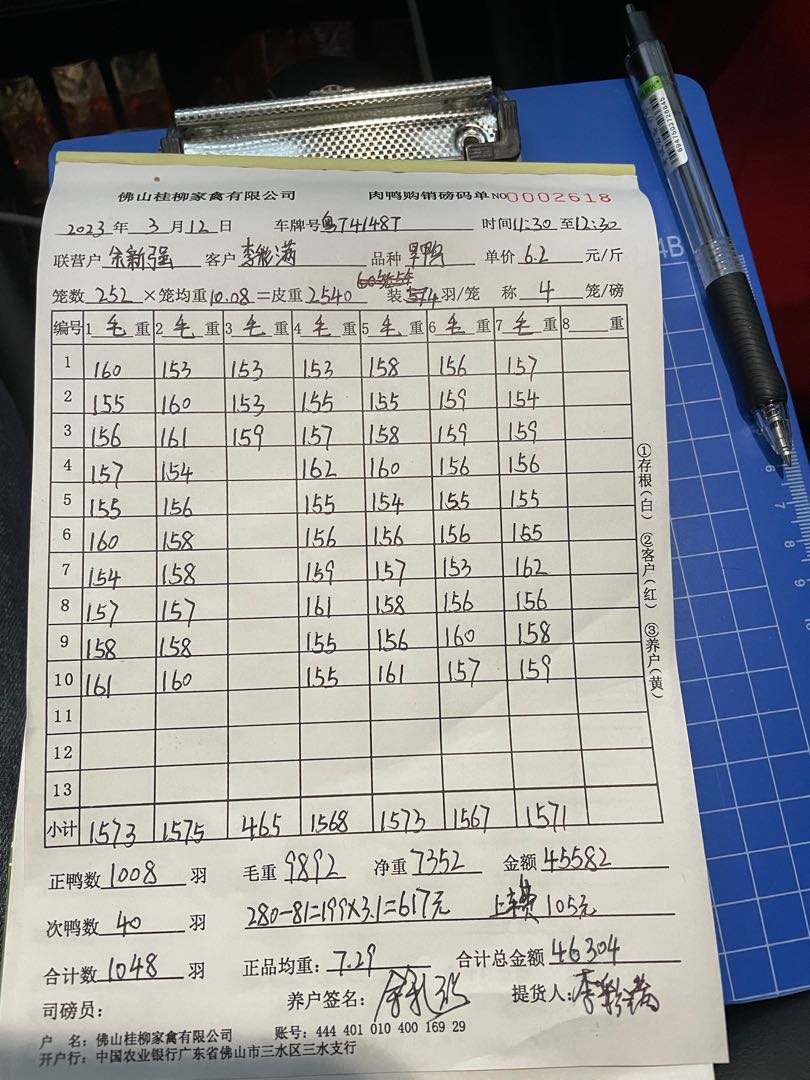 佛山桂柳家禽有限公司 肉鸭购销磅码单 NO0002618
2023 年 3 月 12 日 车牌号粤T4148T 时间11:30 至12:30
联营户 余新强 客户 李彩满 品种 旱鸭 单价 6.2 元/斤
笼数 252 ×笼均重10.08=皮重2540 装 4 羽/笼 称 4 笼/磅
编号 1 毛 重 2 毛 重 3 毛 重 4 毛 重 5 毛 重 6 毛 重 7 毛 重 8 重
1 160 153 153 153 158 156 157
2 155 160 153 155 155 159 154
3 156 161 159 157 158 159 159
4 157 154 162 160 156 156
5 155 156 155 154 155 155
6 160 158 156 156 156 155
7 154 158 159 157 153 162
8 157 157 161 158 156 156
9 158 158 155 156 160 158
10 161 160 155 161 157 159
11
12
13
小计 1573 1575 465 1568 1573 1567 1571
正鸭数 1008 羽 毛重 9892 净重7352 金额45582
次鸭数 40 羽 280-81=199×3.1=617元 上车费 105元
合计数1048 羽 正品均重:7.29 合计总金额46304
司磅员: 养户签名: 提货人:李彩满
户 名:佛山桂柳家禽有限公司 账号:444 401 010 400 169 29
开户行:中国农业银行广东省佛山市三水区三水支行
①存根(白) ②客户(红) ③养户(黄)
6947503728845
4B
6
7
8
9
10